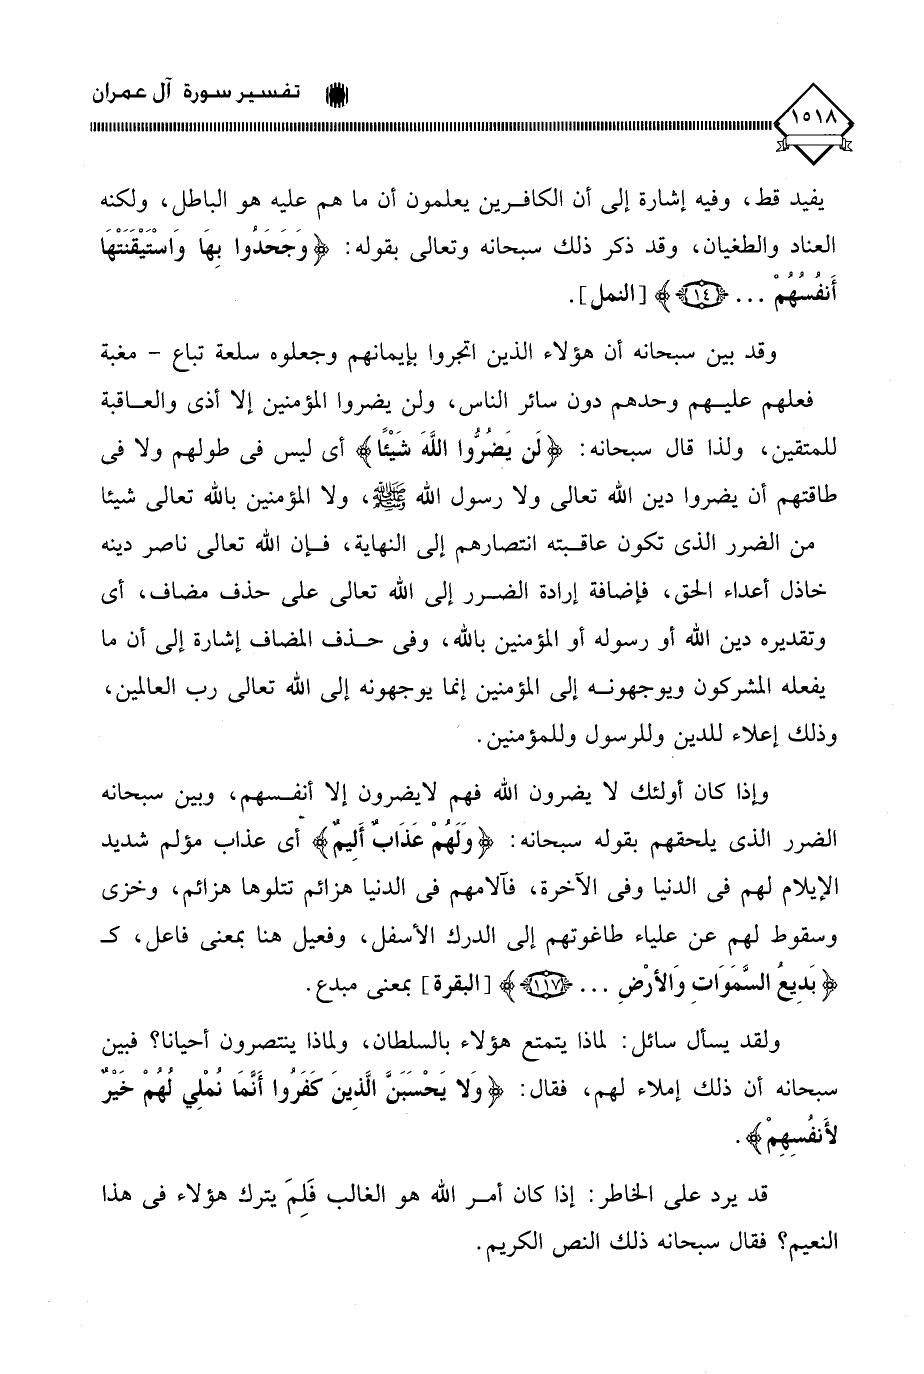 تفسير سورة آل عمران
١٥١٨
يفيد قط، وفيه إشارة إلى أن الكافرين يعلمون أن ما هم عليه هو الباطل، ولكنه
العناد والطغيان، وقد ذكر ذلك سبحانه وتعالى بقوله: ﴿وَجَحَدُوا بِهَا وَاسْتَيْقَنَتْهَا
أَنفُسُهُمْ ... ﴿١٤﴾﴾ [النمل].
وقد بين سبحانه أن هؤلاء الذين اتجروا بإيمانهم وجعلوه سلعة تباع - مغبة
فعلهم عليهم وحدهم دون سائر الناس، ولن يضروا المؤمنين إلا أذى والعاقبة
للمتقين، ولذا قال سبحانه: ﴿لَن يَضُرُّوا اللَّهَ شَيْئًا﴾ أى ليس فى طولهم ولا فى
طاقتهم أن يضروا دين الله تعالى ولا رسول الله ﷺ، ولا المؤمنين بالله تعالى شيئا
من الضرر الذى تكون عاقبته انتصارهم إلى النهاية، فإن الله تعالى ناصر دينه
خاذل أعداء الحق، فإضافة إرادة الضرر إلى الله تعالى على حذف مضاف، أى
وتقديره دين الله أو رسوله أو المؤمنين بالله، وفى حذف المضاف إشارة إلى أن ما
يفعله المشركون ويوجهونه إلى المؤمنين إنما يوجهونه إلى الله تعالى رب العالمين،
وذلك إعلاء للدين وللرسول وللمؤمنين.
وإذا كان أولئك لا يضرون الله فهم لايضرون إلا أنفسهم، وبين سبحانه
الضرر الذى يلحقهم بقوله سبحانه: ﴿وَلَهُمْ عَذَابٌ أَلِيمٌ﴾ أى عذاب مؤلم شديد
الإيلام لهم فى الدنيا وفى الآخرة، فآلامهم فى الدنيا هزائم تتلوها هزائم، وخزى
وسقوط لهم عن علياء طاغوتهم إلى الدرك الأسفل، وفعيل هنا بمعنى فاعل، كـ
﴿بَدِيعُ السَّمَوَاتِ وَالأَرْضِ ... ﴿١١٧﴾﴾ [البقرة] بمعنى مبدع.
ولقد يسأل سائل: لماذا يتمتع هؤلاء بالسلطان، ولماذا ينتصرون أحيانا؟ فبين
سبحانه أن ذلك إملاء لهم، فقال: ﴿وَلا يَحْسَبَنَّ الَّذِينَ كَفَرُوا أَنَّمَا نُمْلِي لَهُمْ خَيْرٌ
لأَنفُسِهِمْ﴾.
قد يرد على الخاطر: إذا كان أمر الله هو الغالب فَلِمَ يترك هؤلاء فى هذا
النعيم؟ فقال سبحانه ذلك النص الكريم.